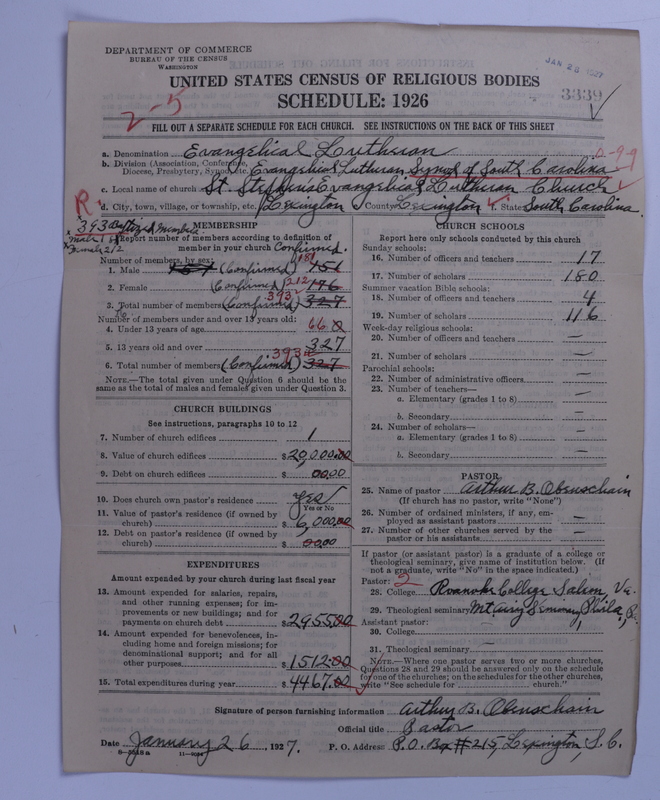 DEPARTMENT OF COMMERCE
BUREAU OF THE CENSUS
WASHINGTON
JAN 28 1927
UNITED STATES CENSUS OF RELIGIOUS BODIES
SCHEDULE: 1926
3339
2-5
FILL OUT A SEPARATE SCHEDULE FOR EACH CHURCH. SEE INSTRUCTIONS ON THE BACK OF THIS SHEET
a. Denomination Evangelical Lutheran
0-99
b. Division (Association, Conference, Diocese, Presbytery, Synod, etc.) Evangelical Lutheran Synod of South Carolina
c. Local name of church St. Stephens Evangelical Lutheran Church
R
d. City, town, village, or township, etc. Lexington County Lexington f. State South Carolina.
* 393 Baptized Members
Female 212
MEMBERSHIP
Report number of members according to definition of
member in your church Confirmed.
Number of members, by sex:
1. Male (Confirmed) 181 151
2. Female (Confirmed) 212 176
3. Total number of members (Confirmed) 393 327
Number of members under and over 13 years old:
4. Under 13 years of age 66 0
5. 13 years old and over 327
6. Total number of members (Confirmed) 393 327
NOTE.—The total given under Question 6 should be the
same as the total of males and females given under Question 3.
CHURCH BUILDINGS
See instructions, paragraphs 10 to 12
7. Number of church edifices 1
8. Value of church edifices $20,000.00
9. Debt on church edifices $ 00.00
10. Does church own pastor's residence Yes
Yes or No
11. Value of pastor's residence (if owned by
church) $6,000.00
12. Debt on pastor's residence (if owned by
church) $ 00.00
EXPENDITURES
Amount expended by your church during last fiscal year
13. Amount expended for salaries, repairs,
and other running expenses; for im-
provements or new buildings; and for
payments on church debt $2955.00
14. Amount expended for benevolences, in-
cluding home and foreign missions; for
denominational support; and for all
other purposes $1512.00
15. Total expenditures during year $4467.00
CHURCH SCHOOLS
Report here only schools conducted by this church
Sunday schools:
16. Number of officers and teachers 17
17. Number of scholars 180
Summer vacation Bible schools:
18. Number of officers and teachers 4
19. Number of scholars 116
Week-day religious schools:
20. Number of officers and teachers —
21. Number of scholars —
Parochial schools:
22. Number of administrative officers —
23. Number of teachers—
a. Elementary (grades 1 to 8) —
b. Secondary —
24. Number of scholars—
a. Elementary (grades 1 to 8) —
b. Secondary —
PASTOR
25. Name of pastor Arthur B. Obenschain
(If church has no pastor, write "None")
26. Number of ordained ministers, if any, em-
ployed as assistant pastors —
27. Number of other churches served by the
pastor or his assistants —
If pastor (or assistant pastor) is a graduate of a college or
theological seminary, give name of institution below. (If
not a graduate, write "No" in the space indicated.)
Pastor: 2
28. College Roanoke College Salem, Va.
29. Theological seminary Mt. Airy Seminary, Phila, Pa.
Assistant pastor:
30. College
31. Theological seminary —
NOTE.—Where one pastor serves two or more churches,
Questions 28 and 29 should be answered only on the schedule
for one of the churches; on the schedules for the other churches,
write "See schedule for church."
Signature of person furnishing information Arthur B. Obenschain
Official title Pastor
Date January 26, 1927. P. O. Address P.O. Box #215, Lexington, S.C.